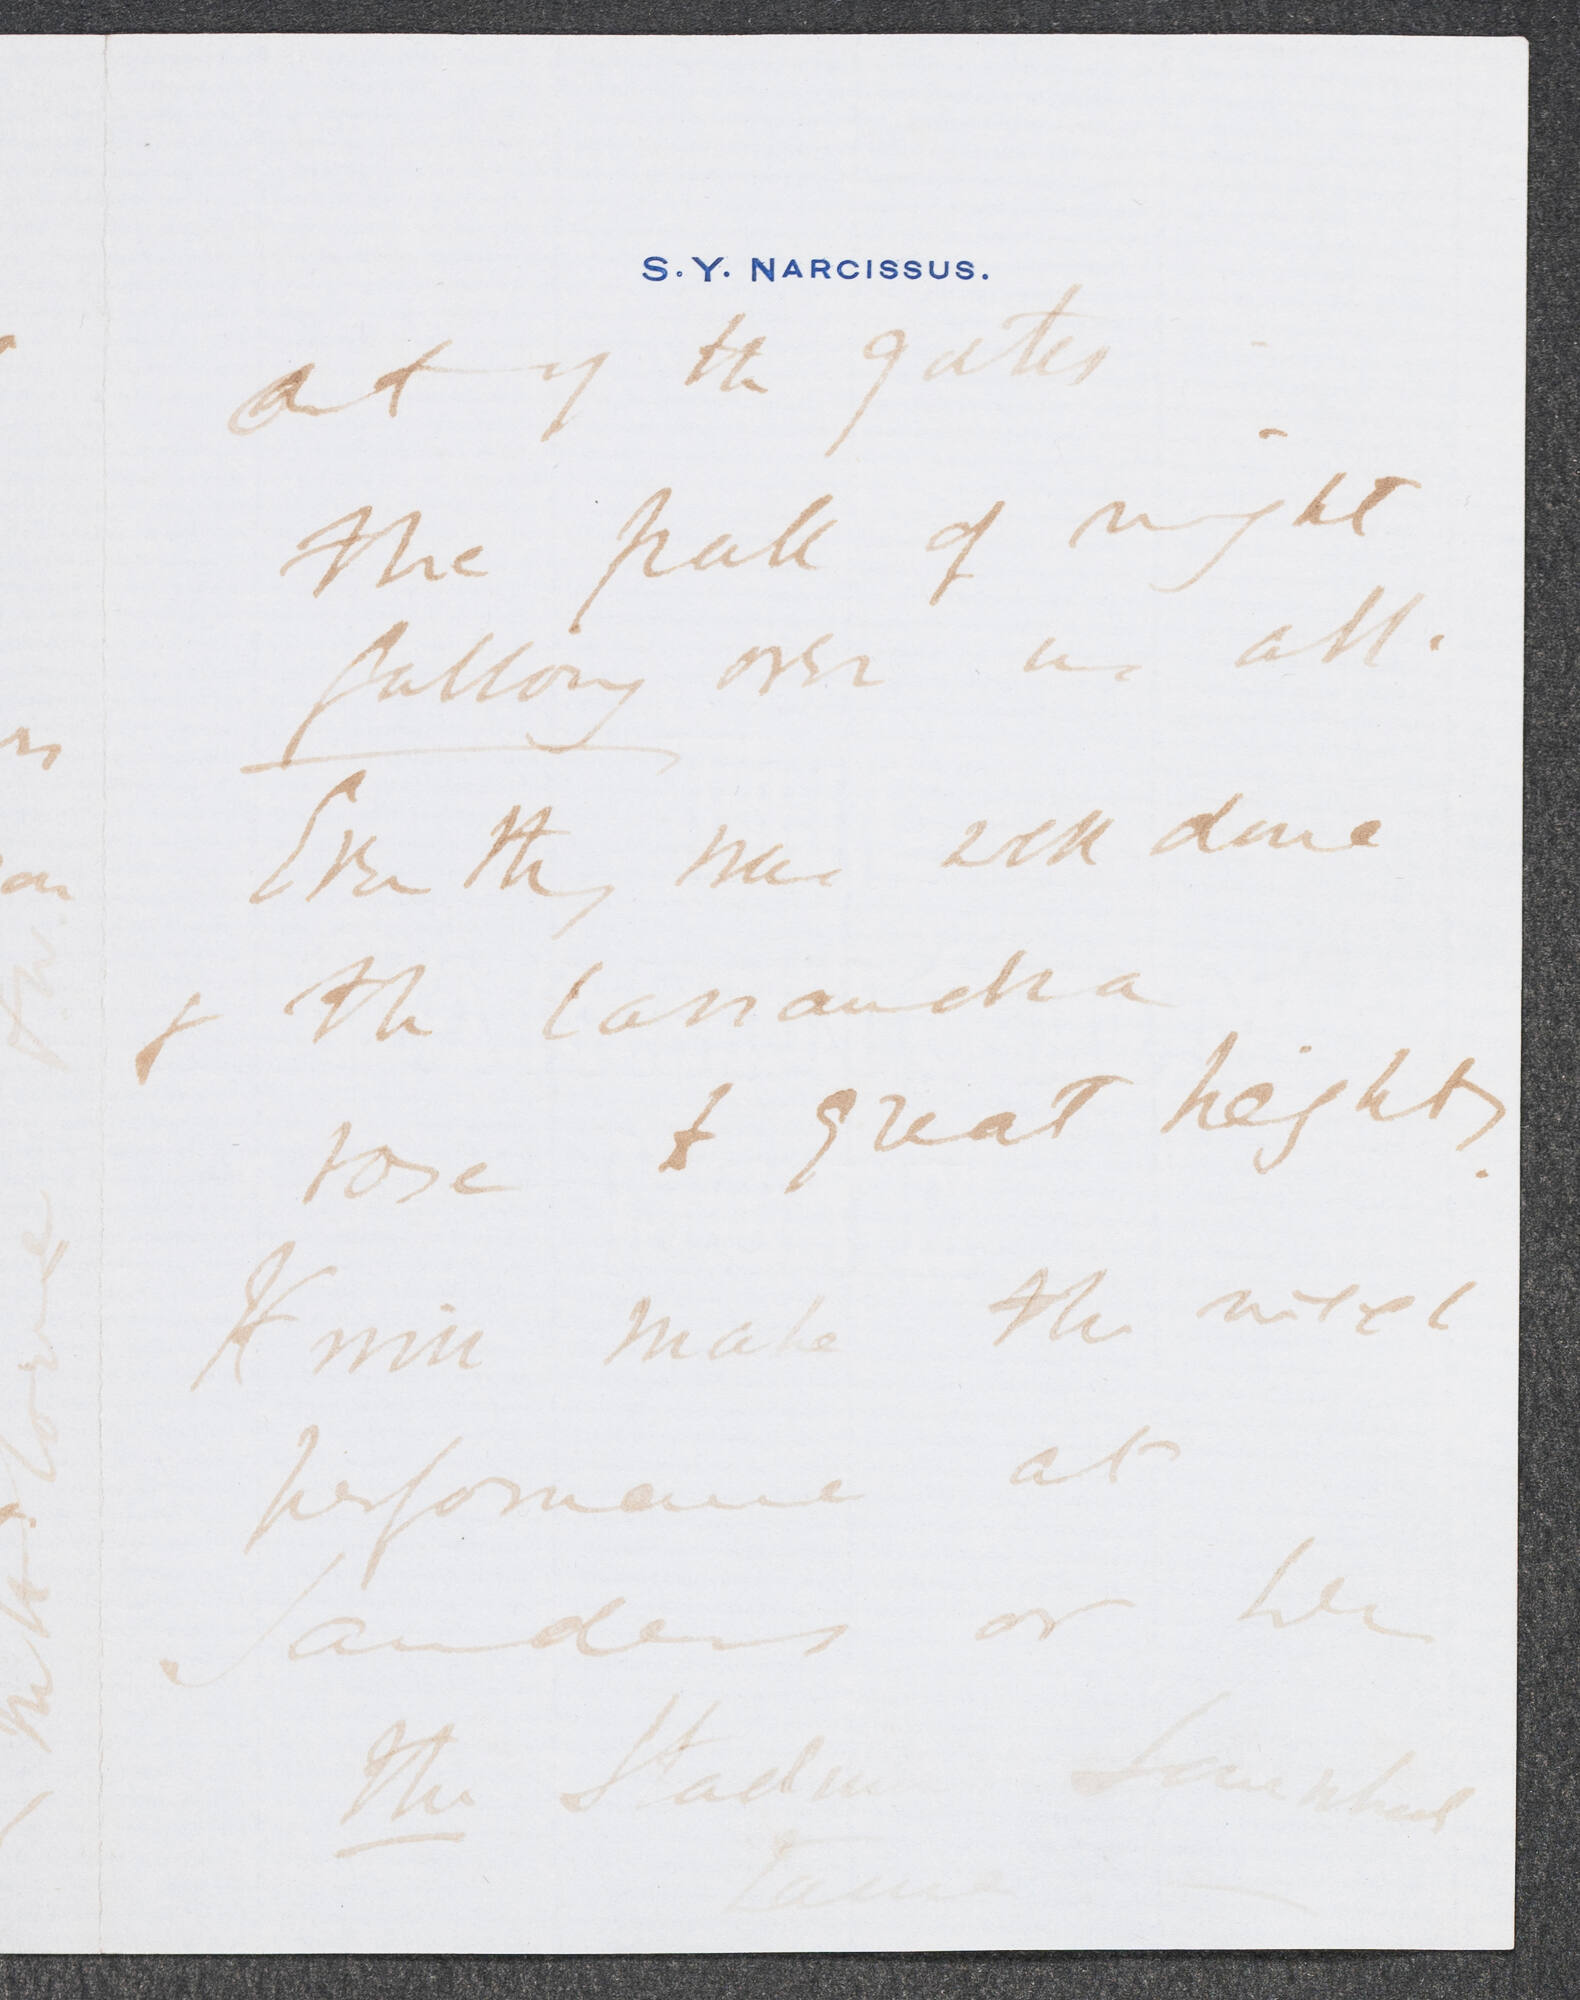 S.Y. NARCISSUS.
out of the gates -
The pall of night
falling over us all.
Everything was well done
& the Cassandra
rose to great heights.
It will make the next
performance at
Sanders or here
the Stadium somewhat
tame -